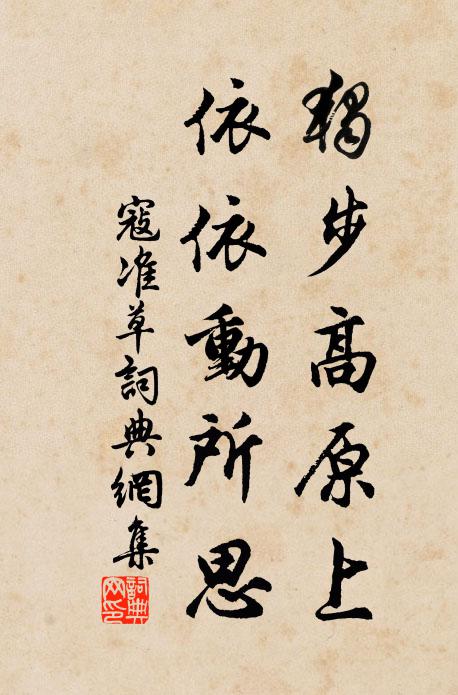 獨步高原上
依依動所思
寇准草詞典網集
詞典網印